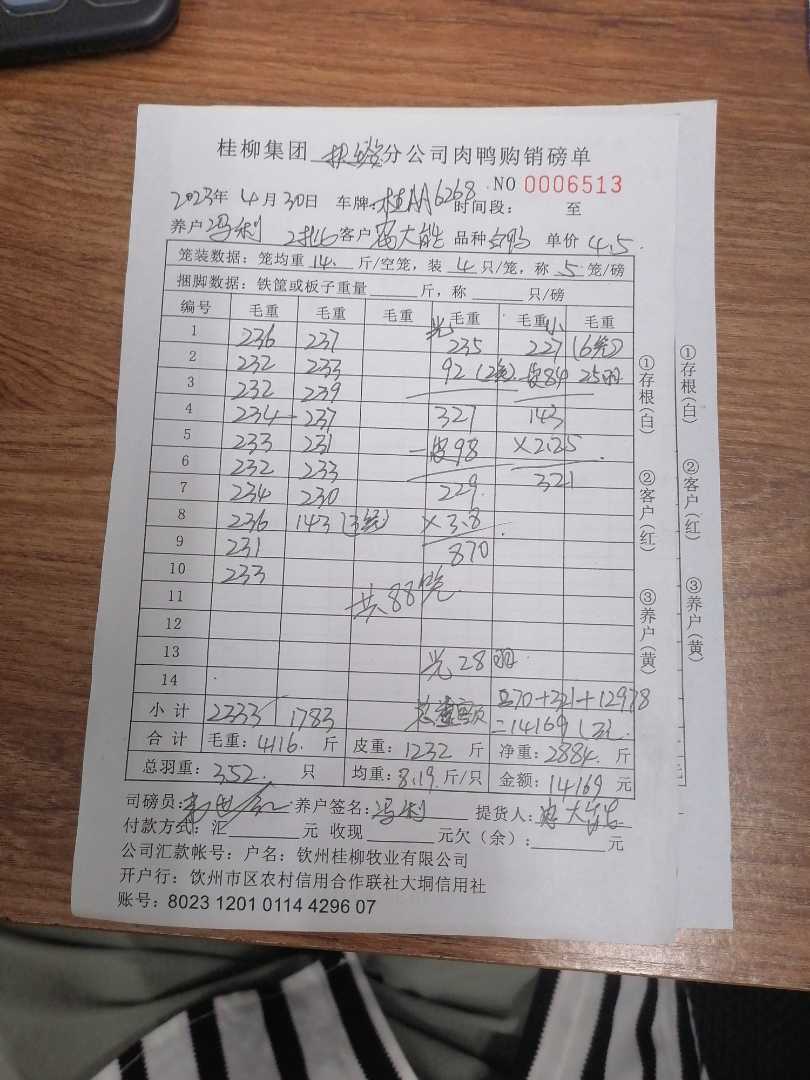 桂柳集团 分公司肉鸭购销磅单
NO 0006513
2023年 4月30日 车牌:桂AA6268 时间段: 至
养户 冯利 2批6 客户 大能 品种 白鸭 单价 4.5
笼装数据:笼均重 14. 斤/空笼,装 4 只/笼,称 5 笼/磅
捆脚数据:铁筐或板子重量 斤,称 只/磅
编号 毛重 毛重 毛重 毛重 毛重 毛重
1 236 237 光 235 小 227 (6笼)
2 232 233 92 (2笼) 皮84 25羽
3 232 239
4 234 237 327 143
5 233 231 -皮98 ×2.25
6 232 233 321
7 234 230 229
8 236 143 (3笼) ×3.8
9 231 870
10 233
11 共88笼
12
13 光28羽
14 870+321+12978
小计 2333 1783 总金额 =14169
合计 毛重:4116. 斤 皮重:1232 斤 净重:2884. 斤
总羽重:352. 只 均重:8.19 斤/只 金额:14169 元
司磅员: 养户签名:冯利 提货人: 大能
付款方式:汇 元 收现 元欠(余): 元
公司汇款帐号:户名:钦州桂柳牧业有限公司
开户行:钦州市区农村信用合作联社大垌信用社
账号:8023 1201 0114 4296 07
①存根(白) ②客户(红) ③养户(黄)
①存根(白) ②客户(红) ③养户(黄)